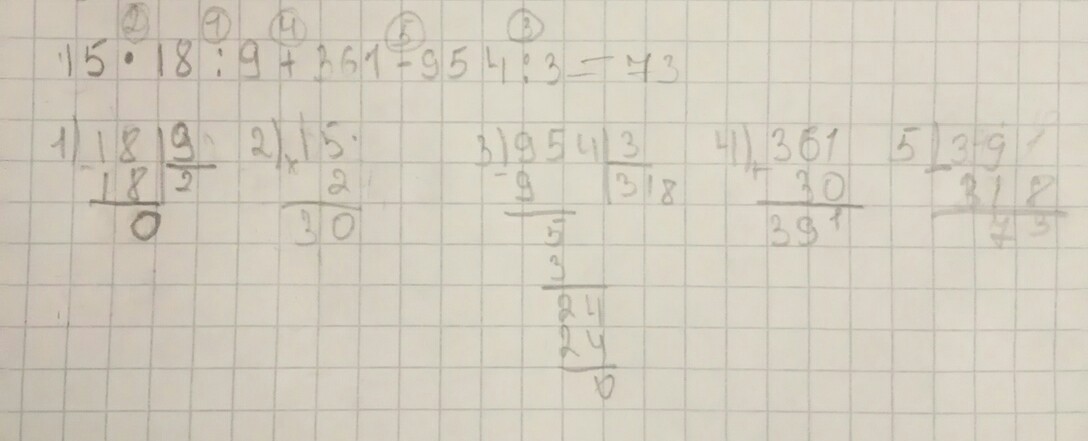 2 1 4 5 3
15 • 18 : 9 + 361 - 954 : 3 = 73
1) 18 | 9 2) × 15 3) 954 | 3 4) + 361 5 391
- 18 | 2 2 - 9 | 318 30 - 318
0 30 5 391 73
3
24
24
0